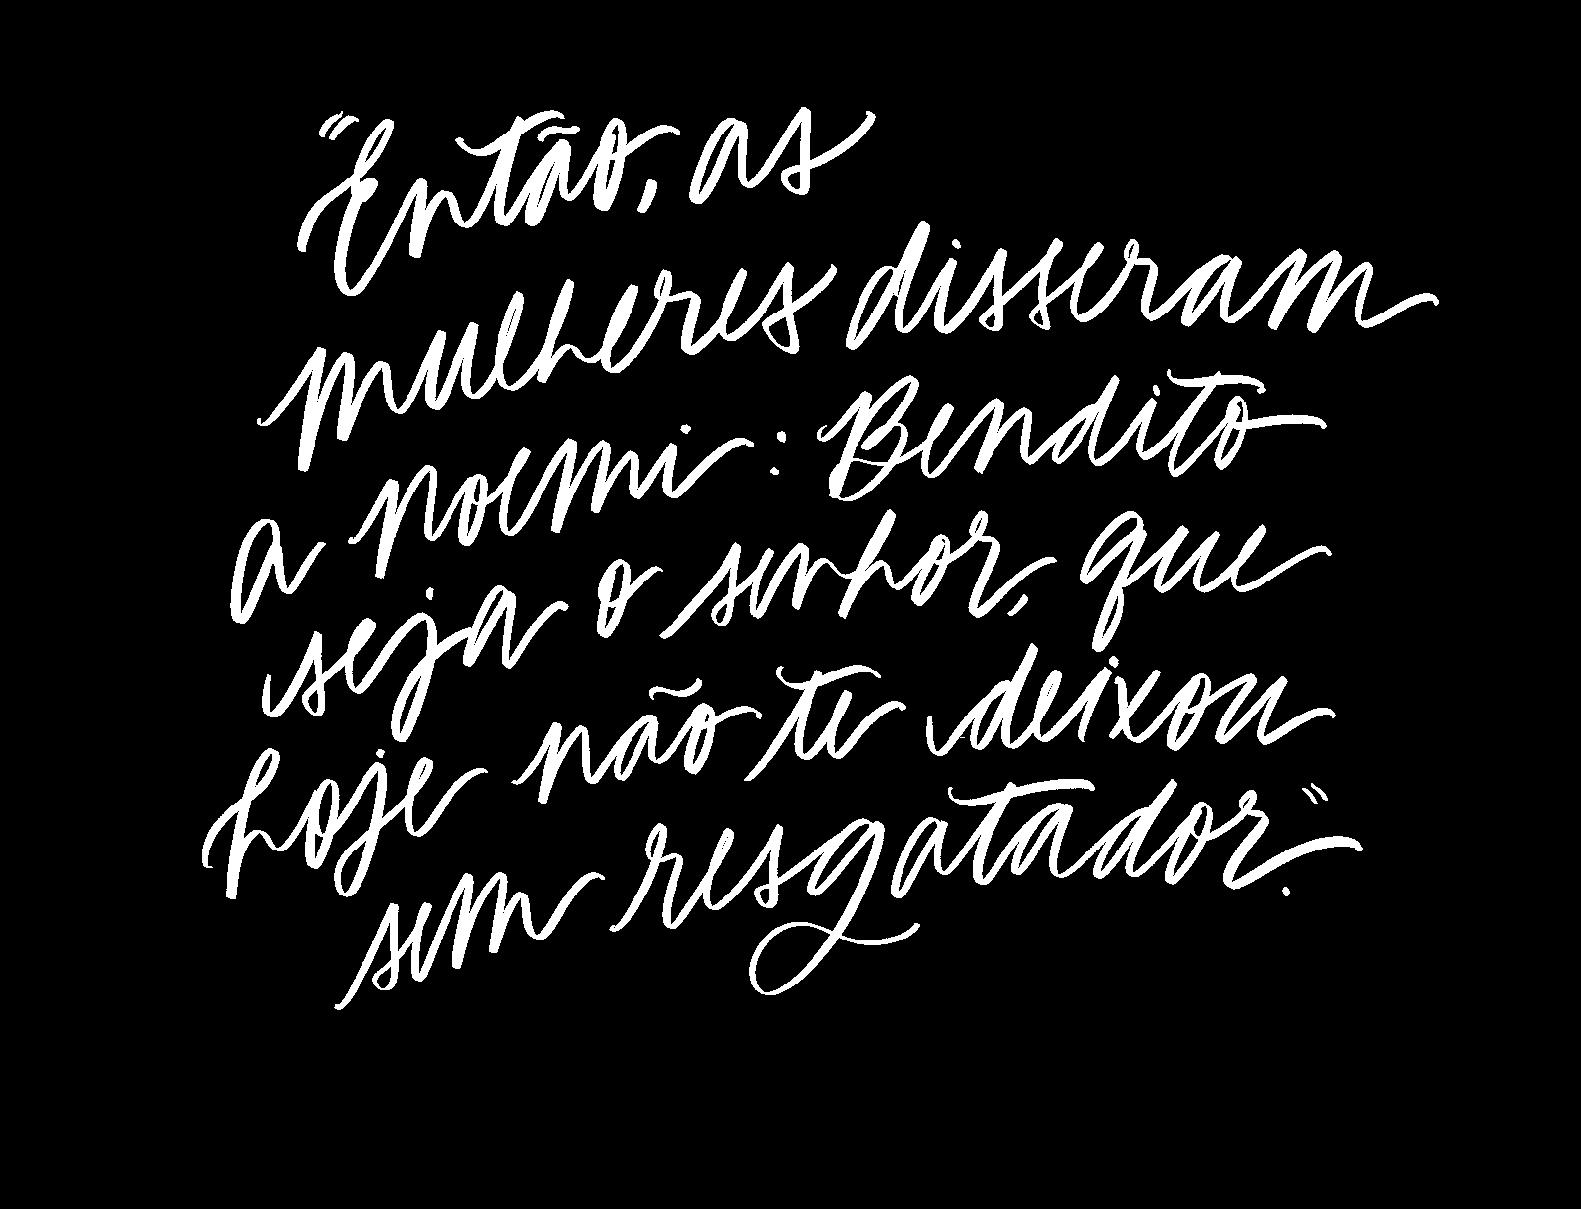 "Então, as
mulheres disseram
a noemi: Bendito
seja o senhor, que
hoje não te deixou
sem resgatador."